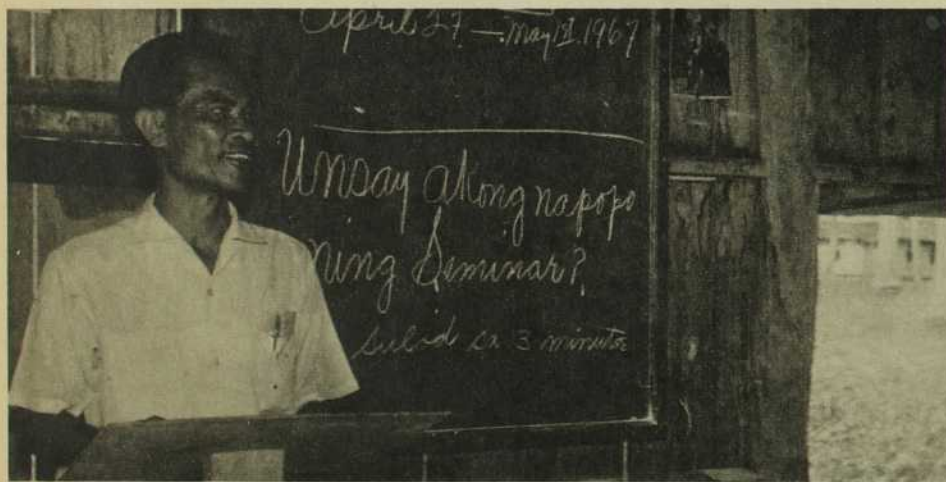 April 27 — May 12, 1967
Unsay akong napopo
ning Seminar?
sulod sa 3 minutos